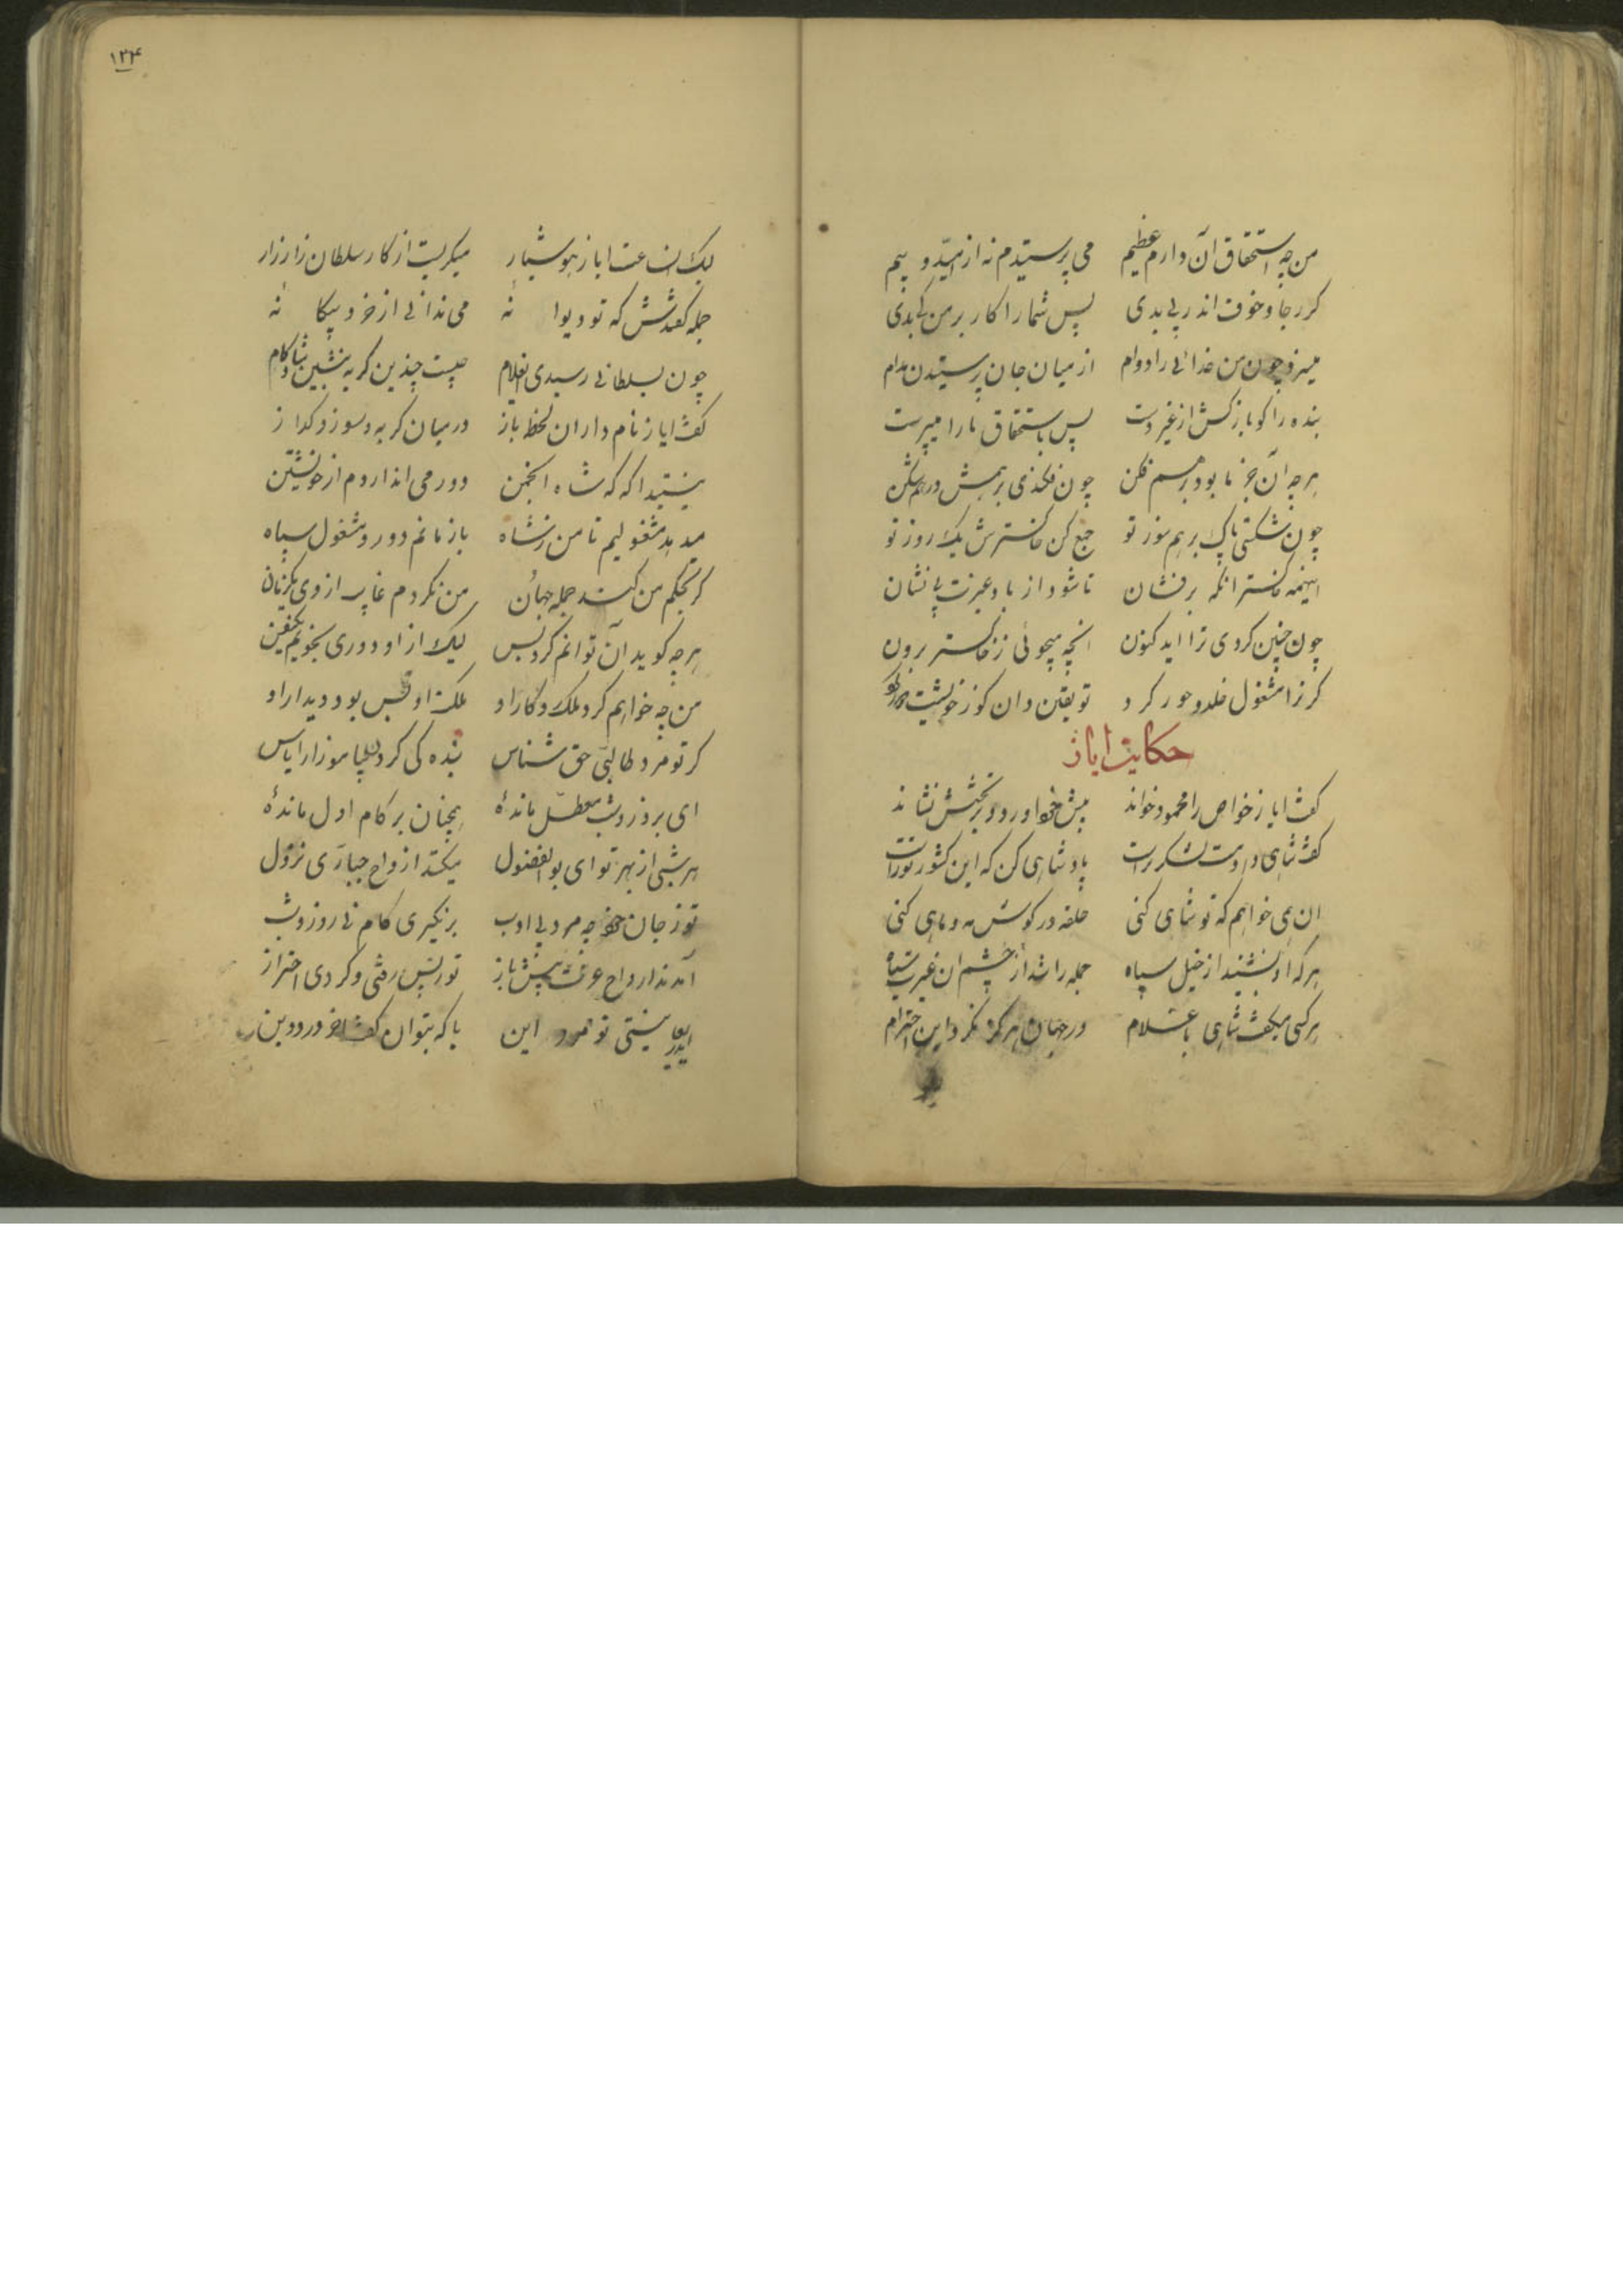 من چه استحقاق آن دارم عظیم می پرستیدم نه از امید و بیم
کر رجا و خوف اندر پی بدی پس شما را کار بر من کی بدی
میسزد چون من خدائی را دوام از میان جان پرستیدن مدام
بنده را کو باز کش از غیر دست پس باستحقاق ما را میپرست
هرچه آن جز ما بود برهم فکن چون فکندی برهمش درهم شکن
چون شکستی پاک برهم سوز تو جمع کن خاکسترش یک روز تو
اینهمه خاکستر انکه برفشان تا شود از باد عیرت بی نشان
چون چنین کردی ترا اید کنون انچه میجوئی ز خاکستر برون
کر ترا مشغول خلد و حور کرد تو یقین دان کو ز خویشت دور کرد
حکایت ایاز
کفت ایاز خواص را محمود خواند پیش خود اورد و بر تختش نشاند
کفت شاهی دادمت لشکر تراست پادشاهی کن که این کشور تراست
ان همی خواهم که تو شاهی کنی حلقه در کوش مه و ماهی کنی
هر که او بشنید از خیل سپاه جمله را شد از چشم ان غیرت سیاه
هر کسی میکفت شاهی با غلام در جهان هرکز نکرد این احترام
۱۲۴
لیک ان ساعت ایاز هوشیار میکریست از کار سلطان زار زار
جمله کفتندش که تو دیوانه می ندانی از خرد بیکانه
چون بسلطانی رسیدی ای غلام چیست چندین کریه بنشین شادکام
کفت ایاز نام داران لحظه باز در میان کریه و سوز و کداز
نیستید اکه که شاه انجمن دور می اندازدم از خویشتن
میدهد مشغولیم تا من ز شاه باز مانم دور و مشغول سپاه
کر بحکم من کند جمله جهان من نکردم غایب از وی یکزمان
هرچه کوید آن توانم کرد و بس لیک از او دوری نجویم یکنفس
من چه خواهم کرد ملک و کار او ملکت او بس بود دیدار او
کر تو مرد طالبی حق شناس بنده کی کردن بیاموز از ایاس
ای بروز و شب معطل مانده همچنان بر کام اول مانده
هر شبی از بهر تو ای بوالفضول میکنند از واح جباری نزول
تو ز جان خود چه مرد بی ادب برنکیری کام نی روز و شب
آمدند از واح عزت پیش باز تو ز پس رفتی و کردی احتراز
ای دریغا نیستی تو مرد این با که بتوان کفت اخر درد دین